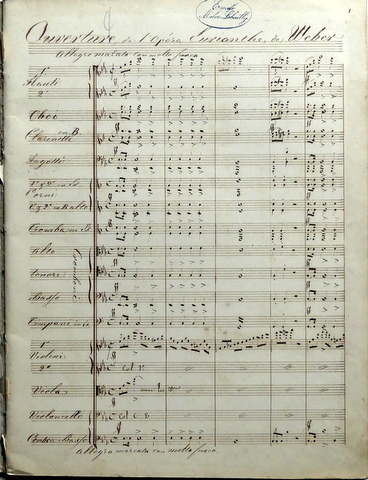 Ouverture de l'Opéra Eurianthe, de Weber
1
Allegro marcato con molto fuoco
1º
Flauti
2º
Oboe
Clarinetti in B
Fagotti
Corni
Tromba in
Alto
Tenore
Basso
Tromboni
1º
Violini
2º
Viola
Violoncello
Contra-Basso
Allegro marcato con molto fuoco